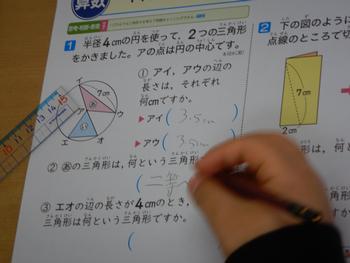 算数
1 半径4cmの円を使って、2つの三角形
をかきました。アの点は円の中心です。
① アイ、アウの辺の
長さは、それぞれ
何cmですか。
▶アイ ( 3.5cm
▶アウ ( 3.5cm
7cm
ア
イ
ウ
エ
オ
あ
② あの三角形は、何という三角形
③ エオの辺の長さが4cmのとき、
三角形は何という三角形ですか。
(
2 下の図のように
点線のところで切
7cm
2cm